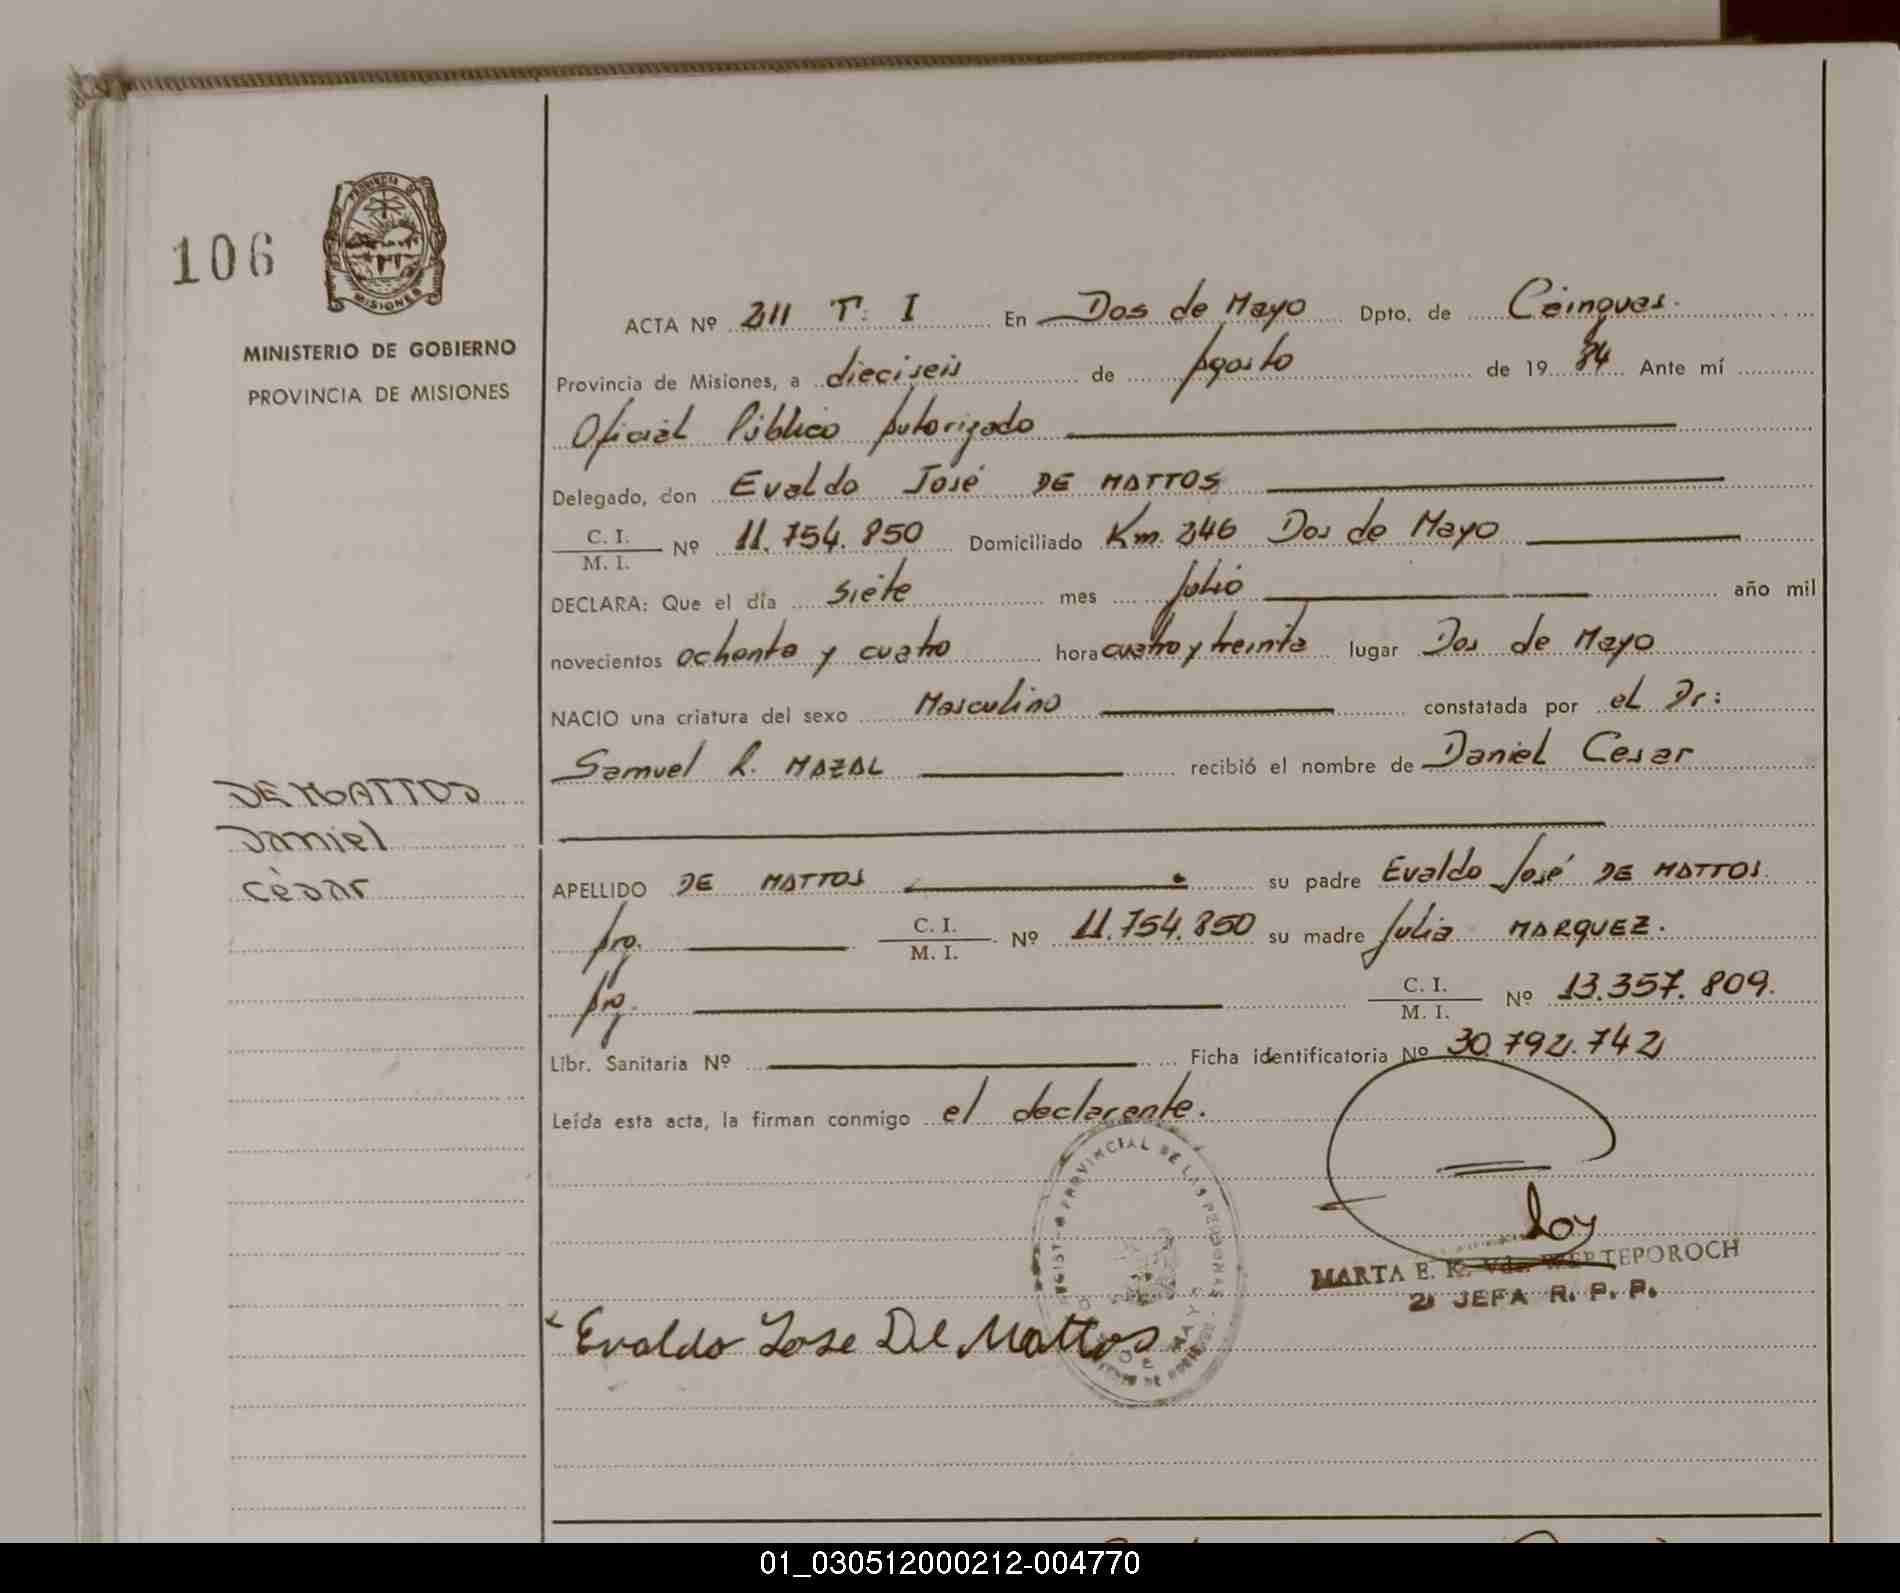 106
MISIONES
MINISTERIO DE GOBIERNO
PROVINCIA DE MISIONES
DE MATTOS
Daniel
César
ACTA Nº 211 T: I En Dos de Mayo Dpto. de Cainguas.
Provincia de Misiones, a dieciseis de Agosto de 19 84 Ante mí
Oficial Público Autorizado
Delegado, don Evaldo José DE MATTOS
C. I.
M. I. Nº 11.754.850 Domiciliado Km. 246 Dos de Mayo
DECLARA: Que el día siete mes Julio año mil
novecientos ochenta y cuatro hora cuatro y treinta lugar Dos de Mayo
NACIO una criatura del sexo Masculino constatada por el Dr:
Samuel R. MAZAL recibió el nombre de Daniel Cesar
APELLIDO DE MATTOS su padre Evaldo José DE MATTOS.
Arg. C. I.
M. I. Nº 11.754.850 su madre Julia MARQUEZ.
Arg. C. I.
M. I. Nº 13.357.809.
Libr. Sanitaria Nº Ficha identificatoria Nº 30.792.742
Leída esta acta, la firman conmigo el declarante.
PROVINCIAL DE LAS PERSONAS
MARTA E. K. Vda. WERTEPOROCH
2ª JEFA R. P. P.
Evaldo Jose De Mattos
01_030512000212-004770